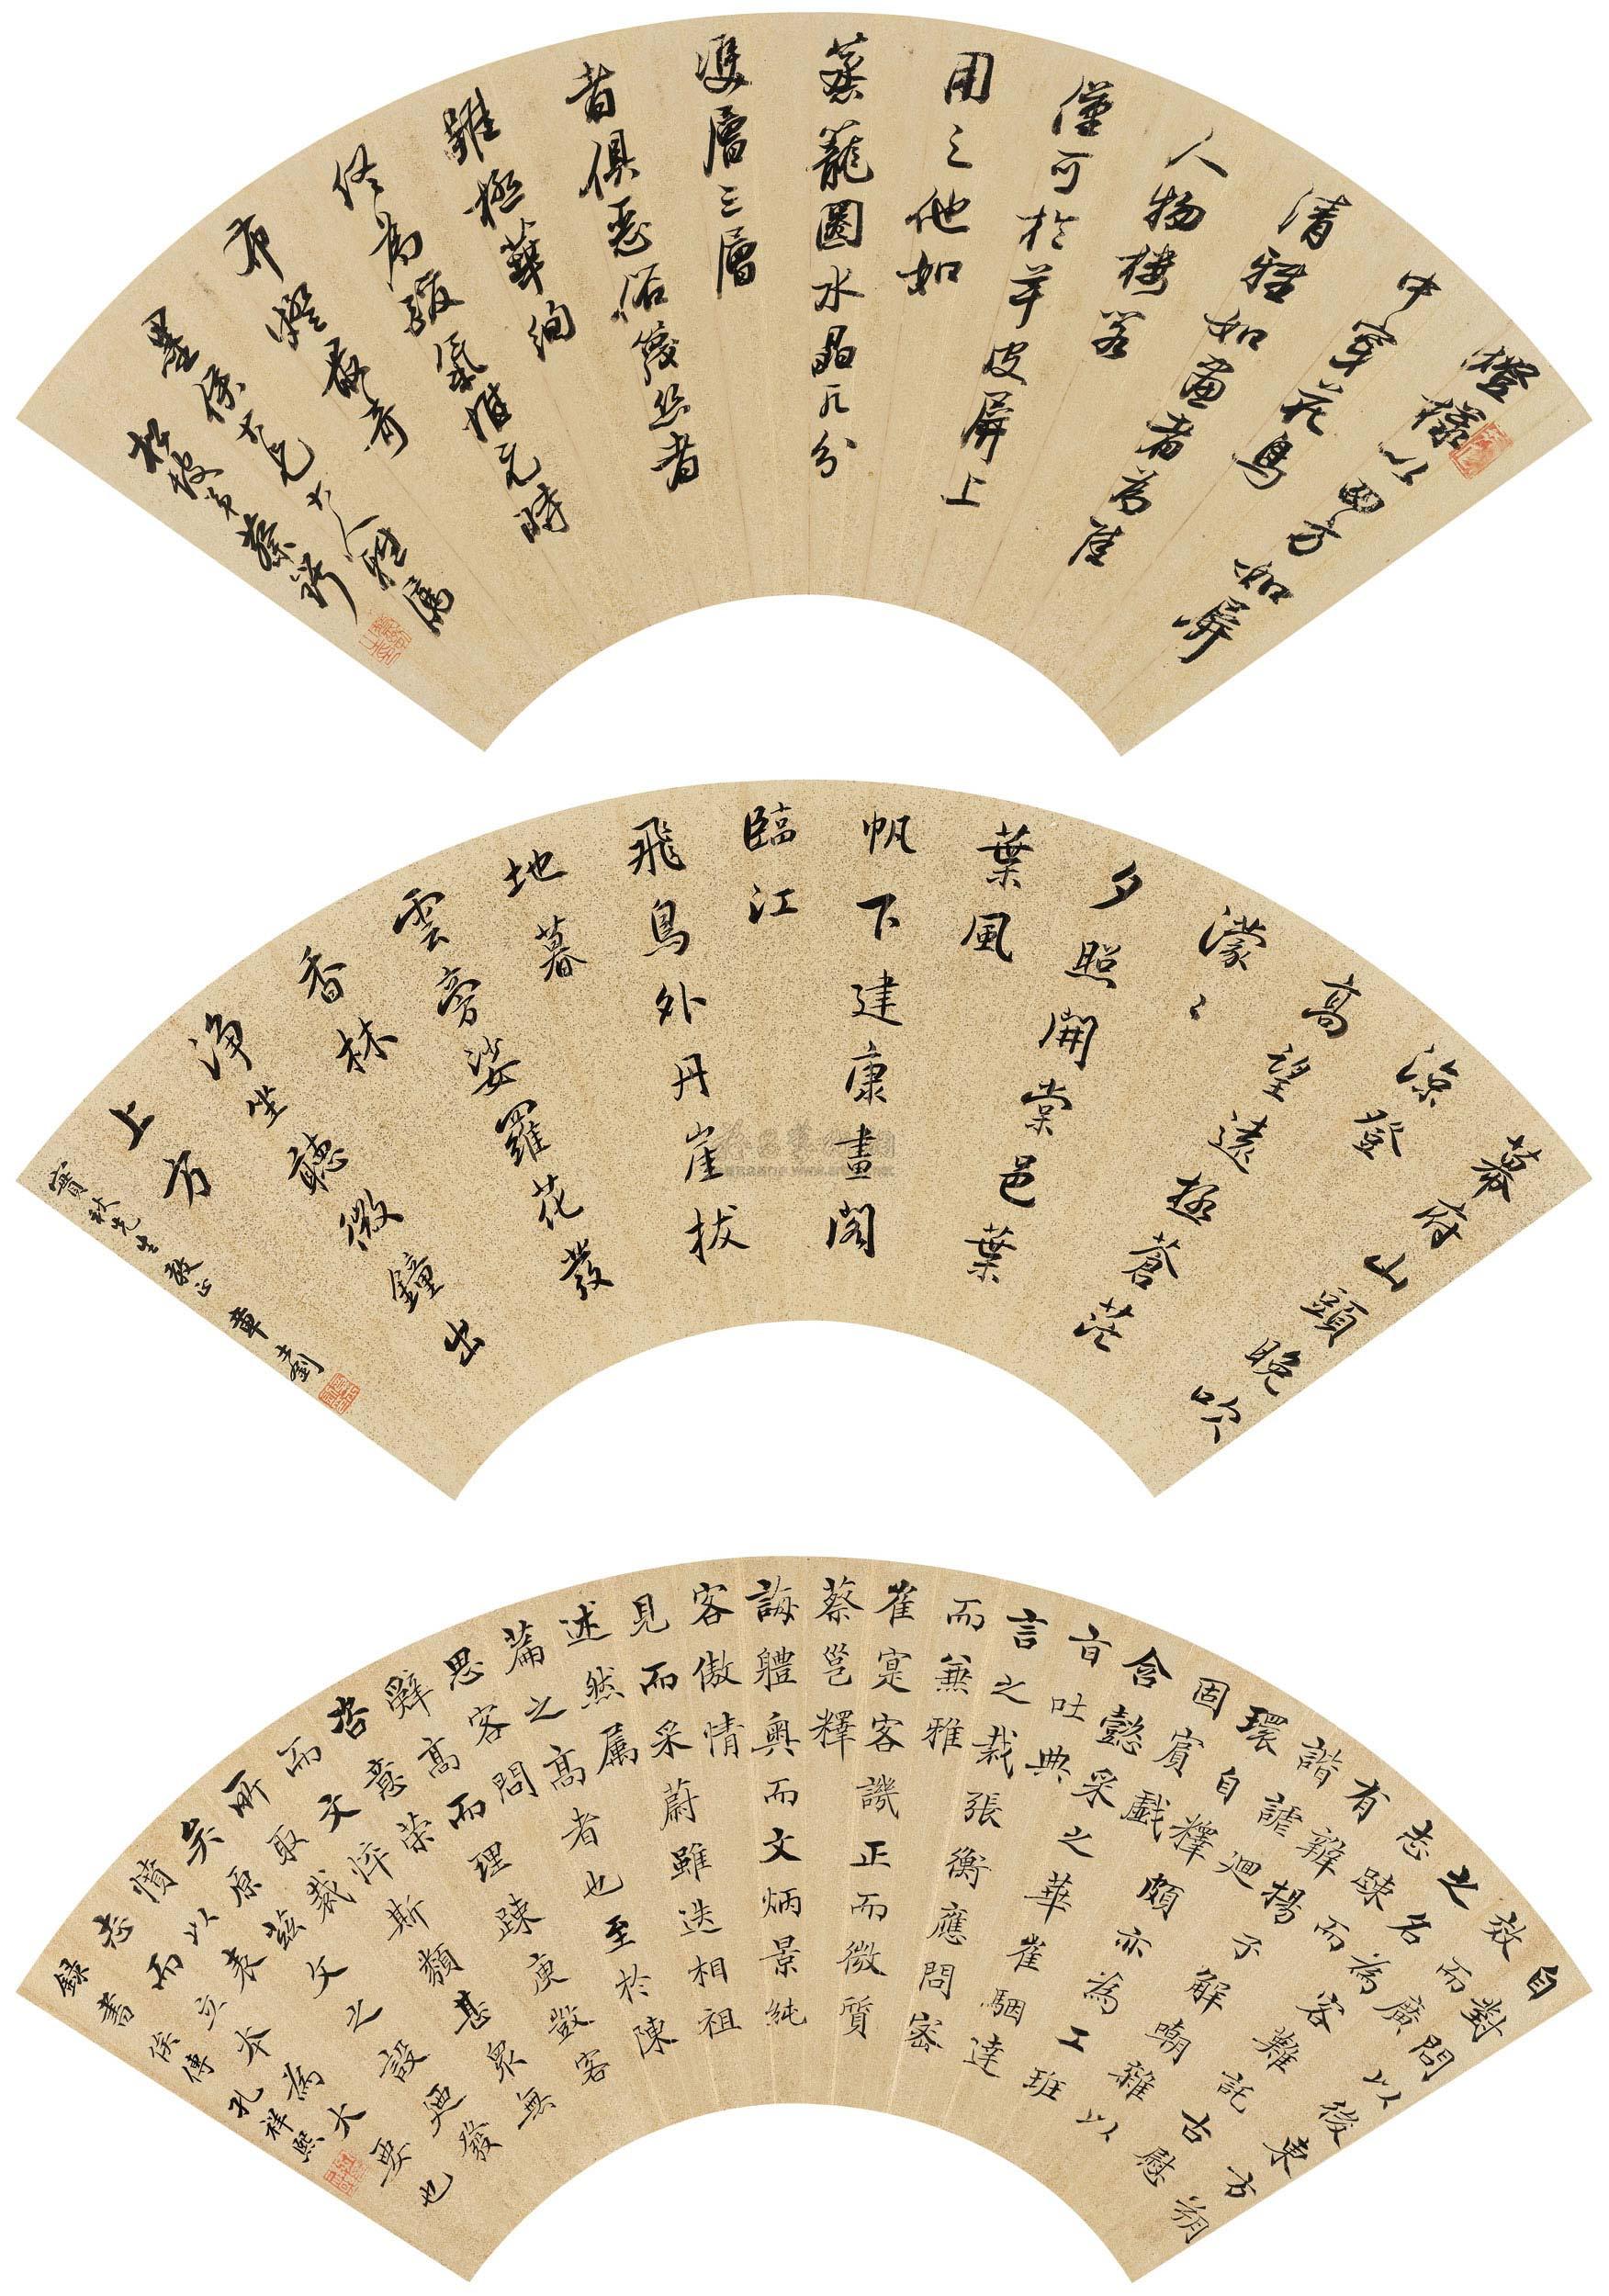 橙樣以四方如屏
中穿花鳥
清雅如畫者為佳
人物樓閣
僅可於羊皮屏上
用之他如
蒸籠圈水晶分
雙層三層
者俱惡俗篾絲者
雖極華絢
終為酸氣惟元時
布燈最奇
墨係大兄大人雅屬
松坡弟蔡鍔
幕府山頭晚吹
涼登
高望遠極蒼茫
濛々
夕照開棠邑葉
葉風
帆下建康畫閣
臨江
飛鳥外丹崖拔
地暮
雲旁娑羅花發
香林
淨坐聽微鐘出
上方
寶秋先生教正 章士釗
自對問以後東方朔
效而廣
之名為客難託古慰
志疎而
有辨揚子解嘲雜以
諧謔迴
環自釋頗亦為工班
固賓戲
含懿采之華崔駰達
旨吐典
言之裁張衡應問密
而兼雅
崔寔客譏正而微質
蔡邕釋
誨體奧而文炳景純
客傲情
見而采蔚雖迭相祖
述然屬
篇之高者也至於陳
思客問
辭高而理疎庾敳客
咨意榮
而文悴斯類甚衆無
所取裁
矣原茲文之設迺發
憤以表
志而立本為大要也
錄書侯傳 孔祥熙